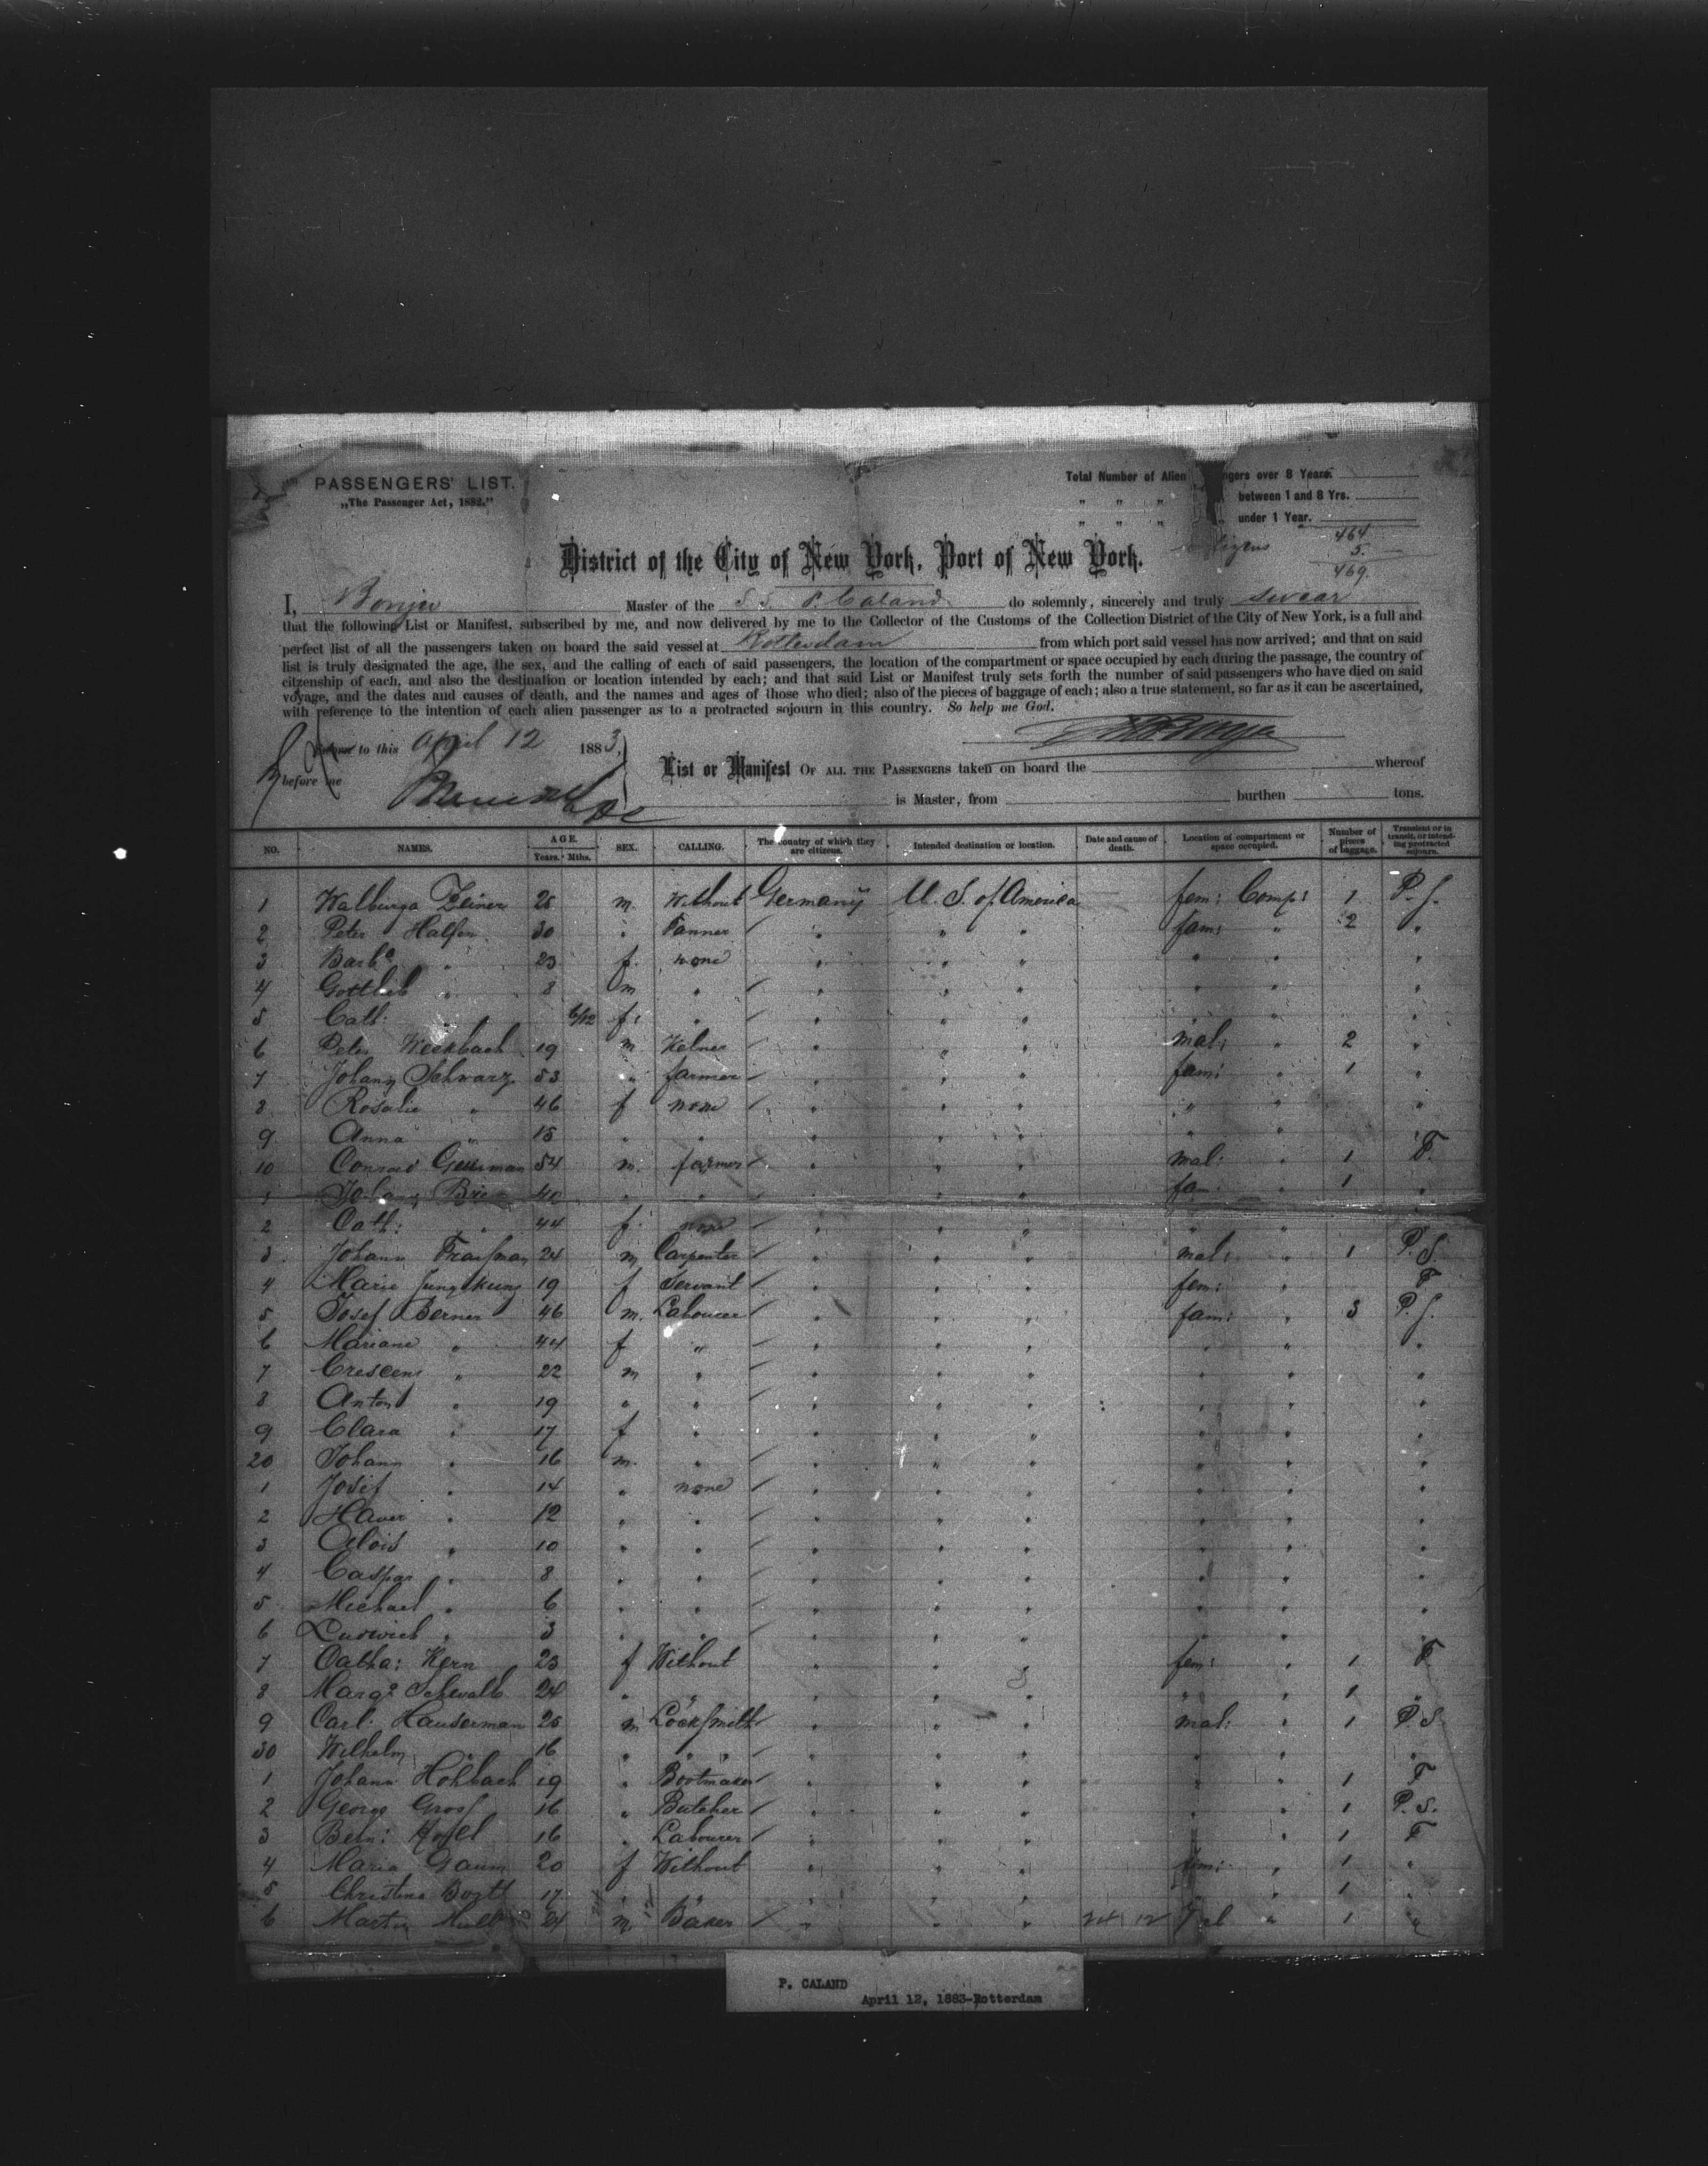 PASSENGERS' LIST.
„The Passenger Act, 1882."
Total Number of Alien ngers over 8 Years.
„ „ „ between 1 and 8 Yrs.
„ „ „ under 1 Year.
464
5.
469.
District of the City of New York, Port of New York.
I, Bonjer Master of the S.S. P. Caland do solemnly, sincerely and truly swear
that the following List or Manifest, subscribed by me, and now delivered by me to the Collector of the Customs of the Collection District of the City of New York, is a full and
perfect list of all the passengers taken on board the said vessel at Rotterdam from which port said vessel has now arrived; and that on said
list is truly designated the age, the sex, and the calling of each of said passengers, the location of the compartment or space occupied by each during the passage, the country of
citzenship of each, and also the destination or location intended by each; and that said List or Manifest truly sets forth the number of said passengers who have died on said
voyage, and the dates and causes of death, and the names and ages of those who died; also of the pieces of baggage of each; also a true statement, so far as it can be ascertained,
with reference to the intention of each alien passenger as to a protracted sojourn in this country. So help me God.
to this April 12 1883,
before me
List or Manifest OF ALL THE PASSENGERS taken on board the whereof
is Master, from burthen tons.
NO. NAMES. AGE. Years. Mths. SEX. CALLING. The country of which they are citizens. Intended destination or location. Date and cause of death. Location of compartment or space occupied. Number of pieces of baggage. Transient or in transit, or intending protracted sojourn.
1 Walburga Zeiner 28 m. Without Germany U. S. of America fem: Comp: 1 P. S.
2 Peter Halfen 30 " Tanner " " " fam: " 2 "
3 Barba " 23 f. none " " " " " "
4 Gottlieb " 8 m " " " " " " "
5 Cath: " 6/12 f: " " " " "
6 Peter Weekbach 19 m Kelner " " " mal: " 2 "
7 Johann Schwarz 53 " farmer " " " fam: " 1 "
8 Rosalie " 46 f none " " " " " "
9 Anna " 15 " " " " " " " "
10 Conrad 54 m. farmer " " " mal: " 1 T.
1 40 " " fam: " 1 "
2 Cath: " 44 f. none " " " " " "
3 Johann 24 m Carpenter " " " mal: " 1 P. S.
4 Marie 19 f Servant " " " fem: " T
5 Josef Berner 46 m. Labourer " " " fam: " 3 P. S.
6 Mariane " 44 f " " " " " " "
7 Crescens " 22 m " " " " " " "
8 Anton " 19 " " " " " " " "
9 Clara " 17 f " " " " " " "
20 Johann " 16 m. " " " " " " "
1 Josef " 14 " none " " " " " "
2 Xaver " 12 " " " " " " " "
3 Alois " 10 " " " " " " " "
4 Caspar " 8 " " " " " " " "
5 Michael " 6 " " " " " " " "
6 Ludwich " 3 " " " " " " " "
7 Catha: Kern 23 f Without " " " fem: " 1 T
8 Marga Schwalb 24 " " " " " " " 1 "
9 Carl Hauserman 25 m Locksmith " " " mal: " 1 P S
30 Wilhelm " 16 " " " " " " " "
1 Johann Hohbach 19 " Bootmaker " " " " " 1 T
2 George Gross 16 " Butcher " " " " " 1 P. S.
3 16 " Labourer " " " " 1 T
4 Maria Gaum 20 f Without " " " fem: " 1 "
5 Christina 17 " " " " " " 1 "
6 Martin 24 m. Baker " " " " 1 "
P. CALAND
April 12, 1883-Rotterdam